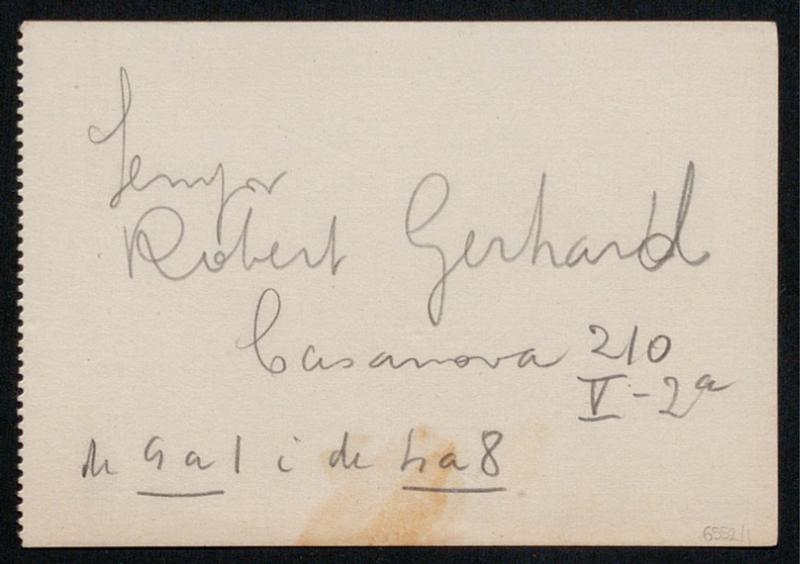 Senyor
Robert Gerhard
Casanova 210
V - 2ª
de 9 a 1 i de 4 a 8
6552/1